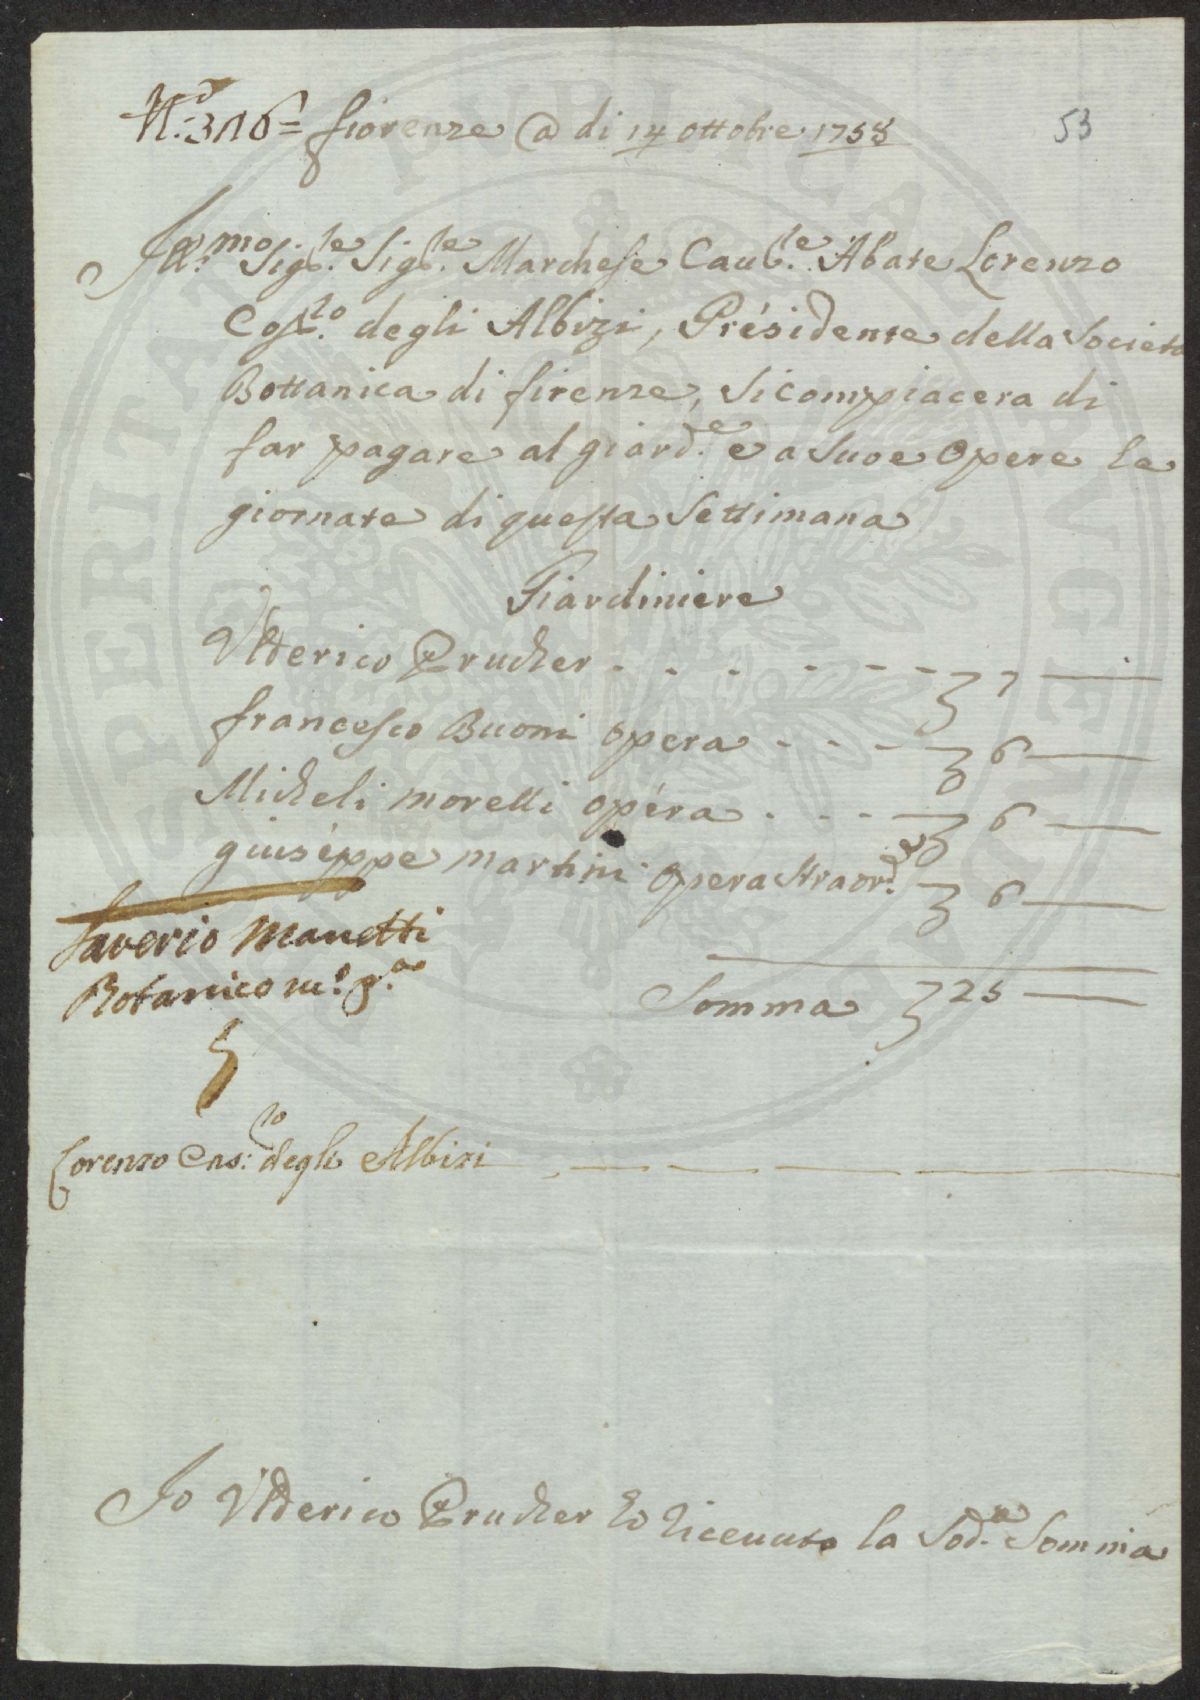 N.o 316 = fiorenze @ di 14 ottobre 1758
53
Ill.mo Sig.le Sig.le Marchese Caul.le Abate Lorenzo
Cos.to degli Albizi, Présidente della Societa
Bottanica di firenze, si compiacera di
far pagare al giard.e e a suoe opere le
giornate di questa Settimana
Giardiniere
Ulderico Prucher . . . . - - - 7 —
francesco Buoni opera - - - 6 —
Micheli morelli opéra . - - 6 —
giuséppe martini opera straord.e 6 —
Saverio Manetti
Botanico m.o p.a
Somma 25 —
Lorenzo Cos:to degli Albizi
Io Ulderico Prucher ho ricevuto la Sod.a Somma